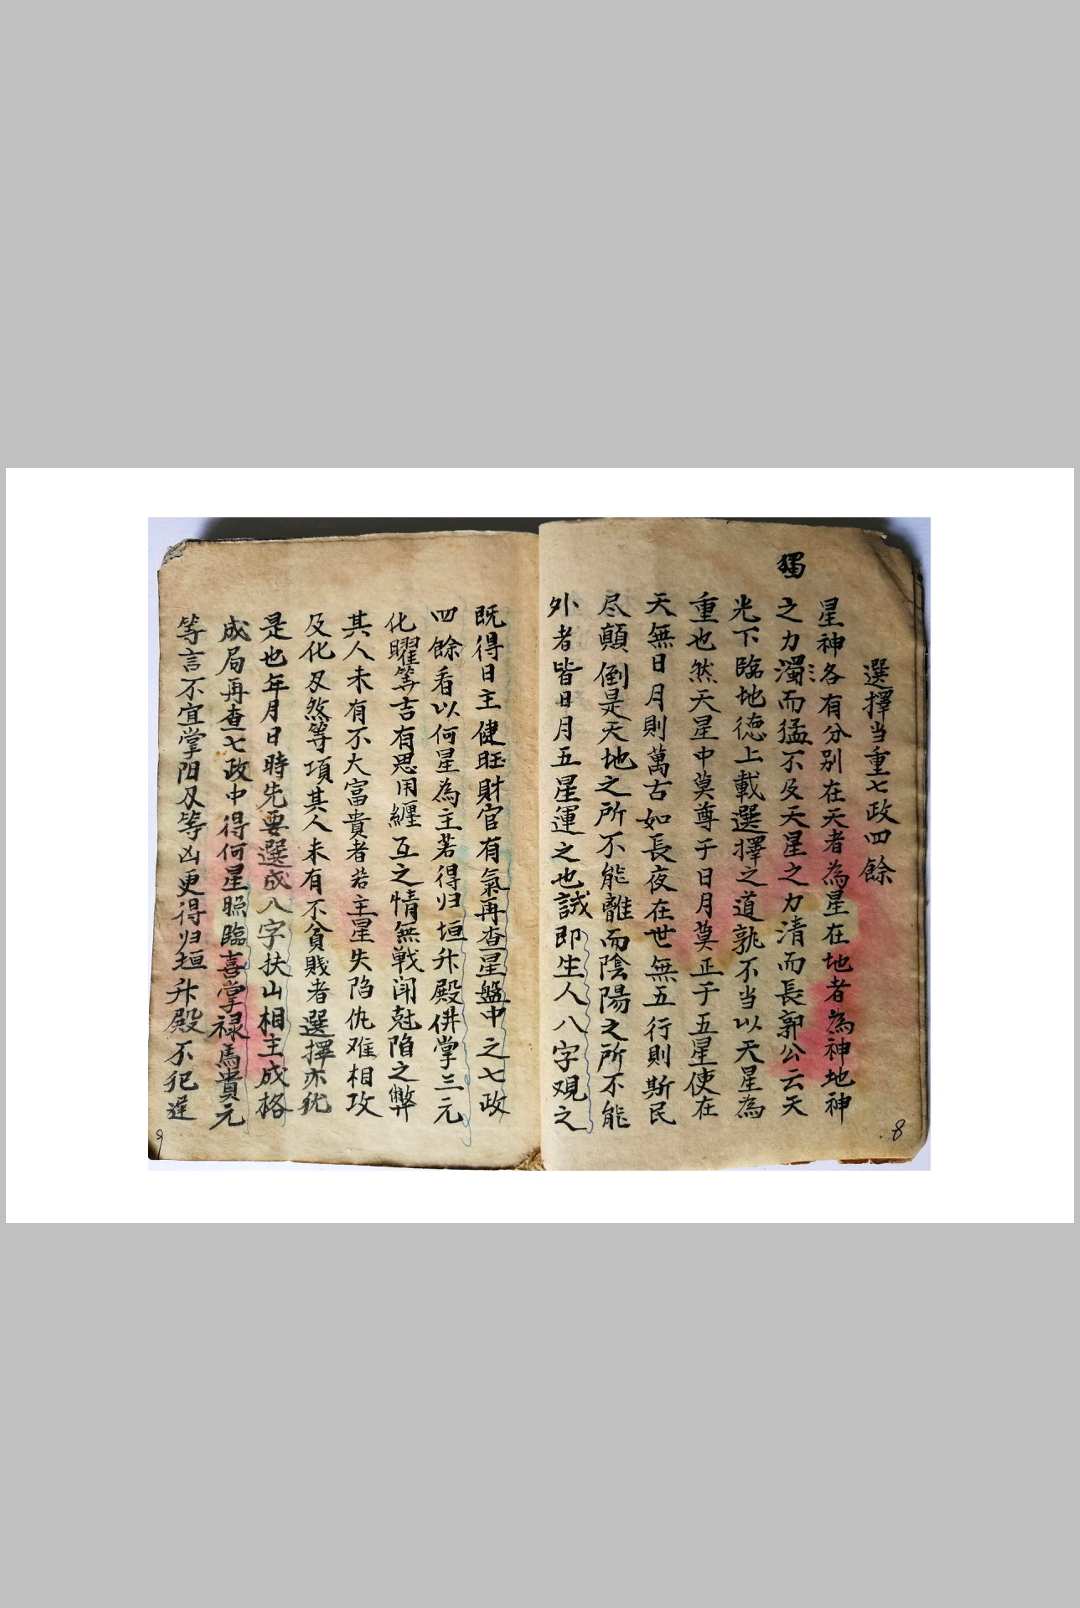 選擇当重七政四餘
星神各有分别在天者為星在地者為神地神
獨
之力濁而猛不及天星之力清而長郭公云天
光下臨地德上載選擇之道孰不当以天星為
重也然天星中莫尊于日月莫正于五星使在
天無日月則萬古如長夜在世無五行則斯民
尽顛倒是天地之所不能離而陰陽之所不能
外者皆日月五星運之也誠即生人八字观之
8
既得日主健旺財官有氣再查星盤中之七政
四餘看以何星為主若得归垣升殿併掌三元
化曜等吉有恩用纏互之情無戦闘尅陷之弊
其人未有不大富貴者若主星失陷仇难相攻
及化刃煞等項其人未有不貧賎者選擇亦犹
是也年月日時先要選成八字扶山相主成格
成局再查七政中得何星照臨喜掌禄馬貴元
等言不宜掌阳刃等凶更得归垣升殿不犯逆
9